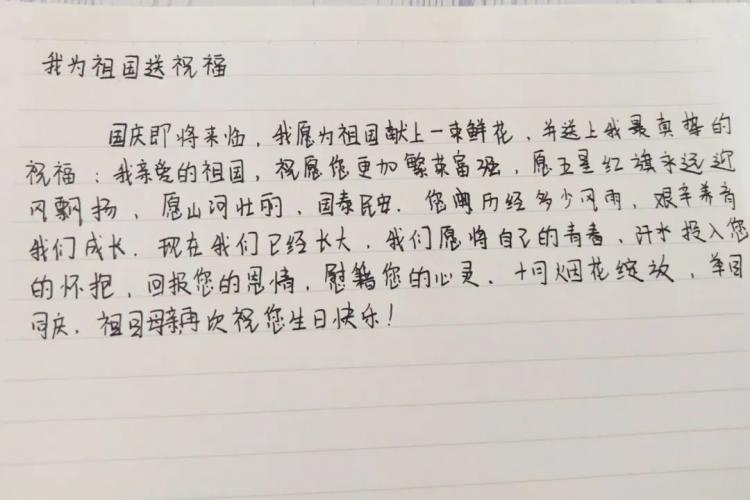 我为祖国送祝福
国庆即将来临，我愿为祖国献上一束鲜花，并送上我最真挚的
祝福：我亲爱的祖国，祝愿您更加繁荣富强，愿五星红旗永远迎
风飘扬，愿山河壮丽，国泰民安．您历经多少风雨，艰辛养育
我们成长．现在我们已经长大，我们愿将自己的青春、汗水投入您
的怀抱，回报您的恩情，慰籍您的心灵．十月烟花绽放，举国
同庆．祖国母亲再次祝您生日快乐！